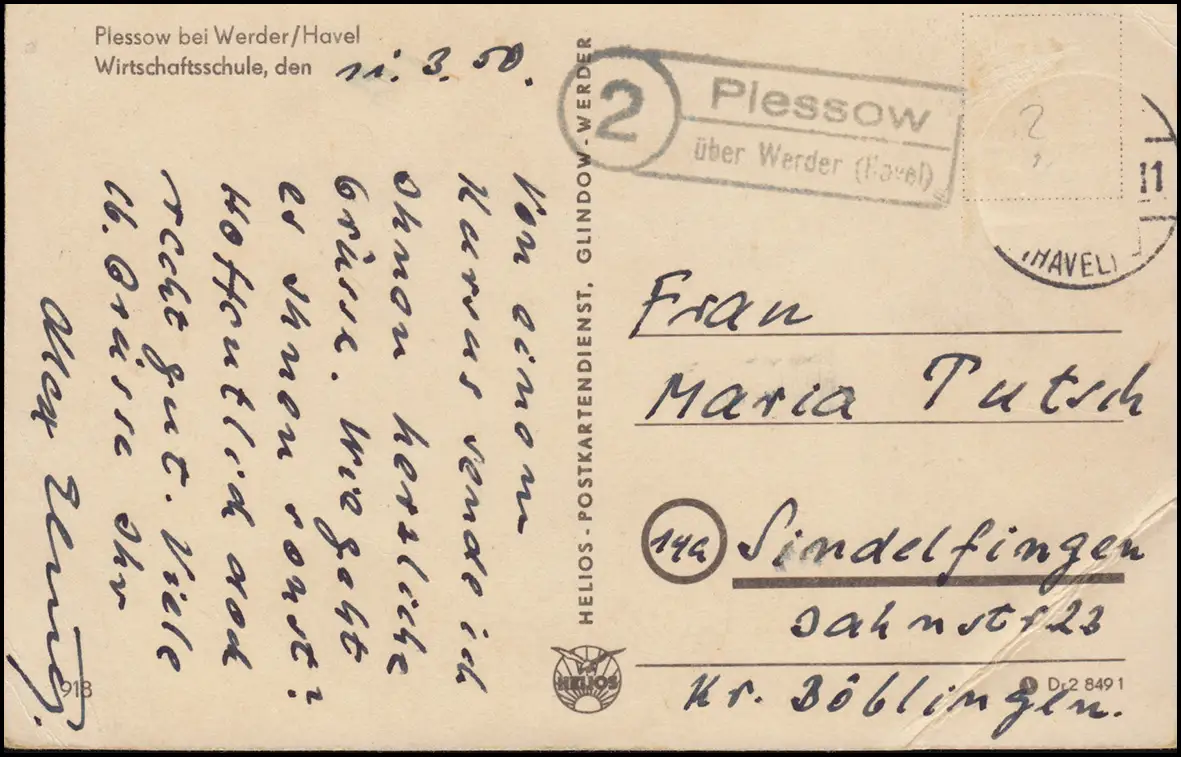 Plessow bei Werder/Havel
Wirtschaftsschule, den 11. 3. 50.
Von einem
Kursus sende ich
Ihnen herzliche
Grüsse. Wie geht
es Ihnen sonst?
Hoffentlich doch
recht gut. Viele
lb. Grüsse Ihr
918
HELIOS-POSTKARTENDIENST, GLINDOW-WERDER
HELIOS
2
Plessow
über Werder (Havel)
2
11
(HAVEL)
Frau
Maria Tutsch
14a Sindelfingen
Jahnstr 23
Kr. Böblingen.
D2 8491